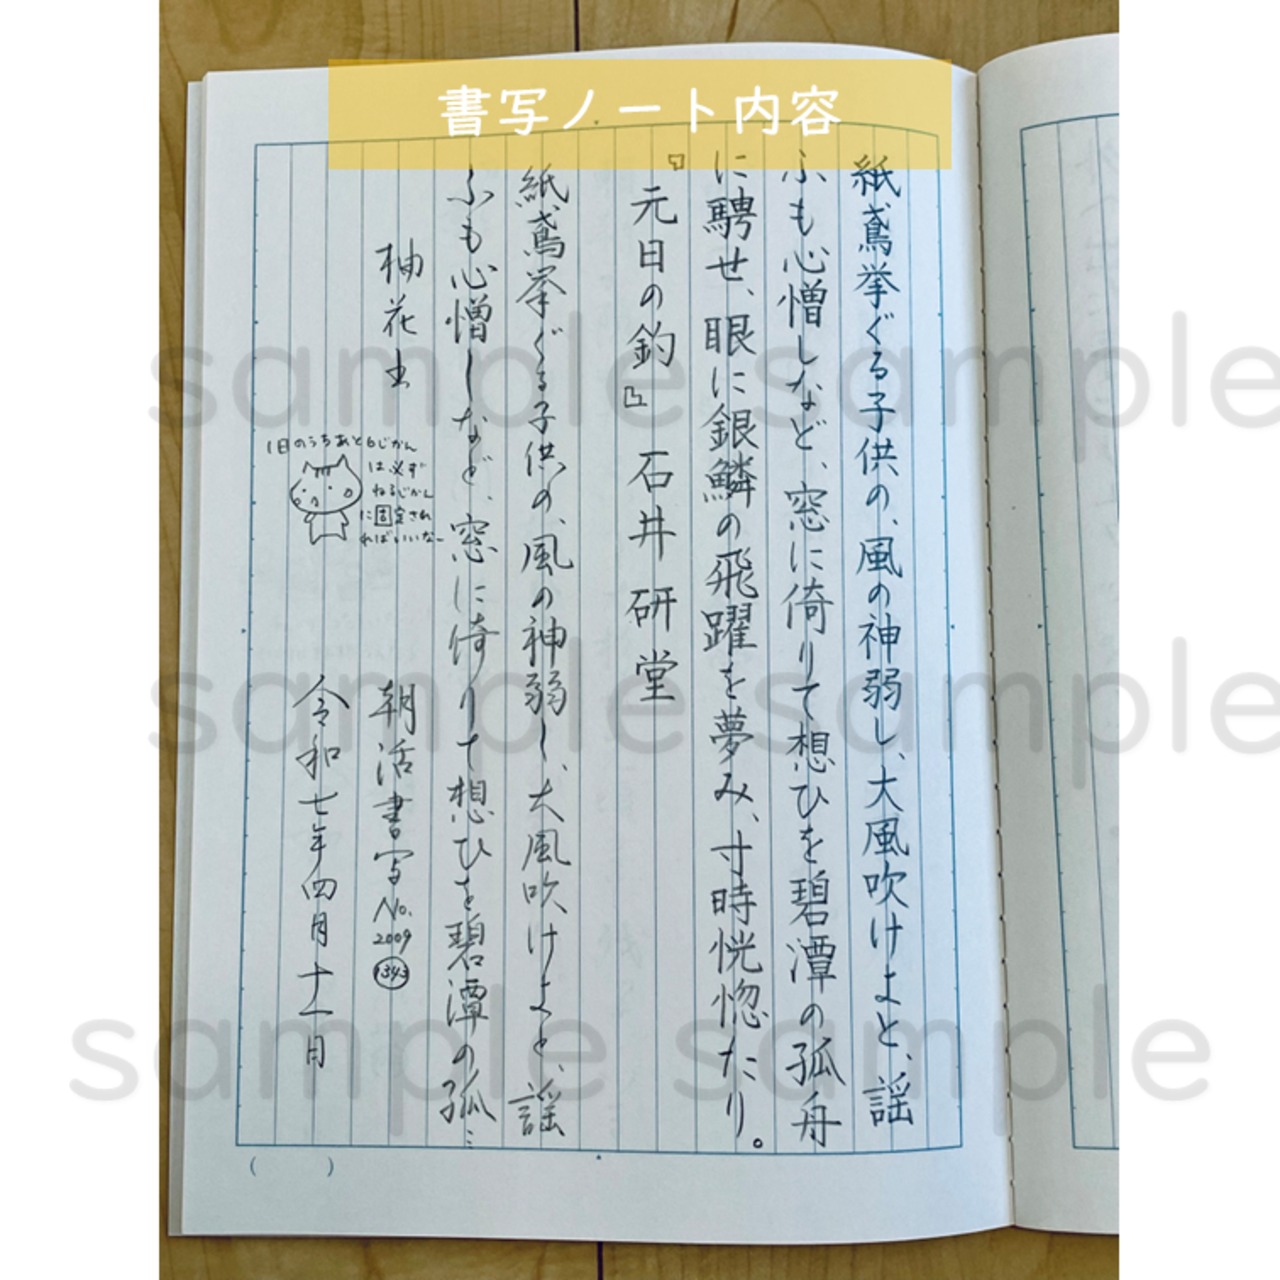 書写ノート内容
紙鳶挙ぐる子供の、風の神弱し、大風吹けよと、謡
ふも心憎しなど、窓に倚りて想ひを碧潭の孤舟
に騁せ、眼に銀鱗の飛躍を夢み、寸時恍惚たり。
『元日の釣』 石井研堂
紙鳶挙ぐる子供の、風の神弱し、大風吹けよと、謡
ふも心憎しなど、窓に倚りて想ひを碧潭の孤…
柚花出
朝活書写No.2009
1343
1日のうちあと6じかん
は必ず
ねるじかん
に固定され
ればいいなー
令和七年四月十一日
( )
sample sample
sample sample
sample sample